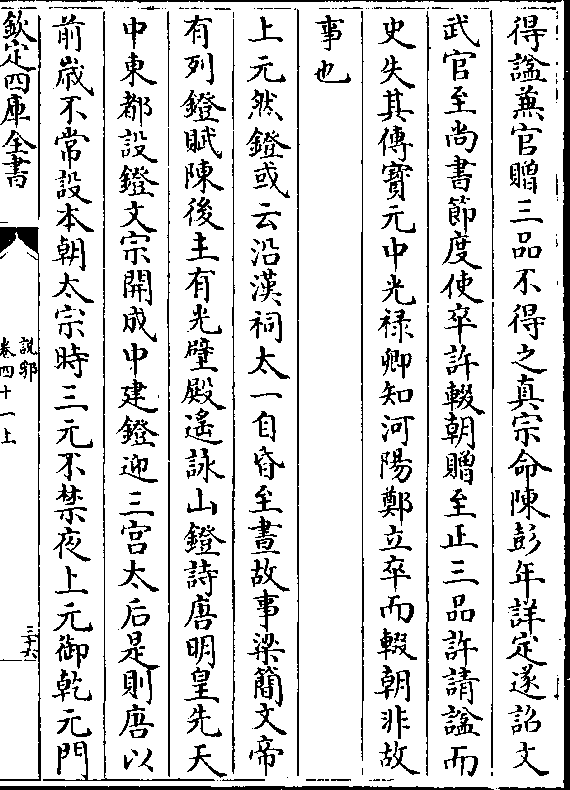 得諡兼官贈三品不得之真宗命陳彭年詳定遂詔文
武官至尚書節度使卒許輟朝贈至正三品許請諡而
史失其傳寳元中光禄卿知河陽鄭立卒而輟朝非故
事也
上元然鐙或云沿漢祠太一自昏至晝故事梁簡文帝
有列鐙賦陳後主有光璧殿遙詠山鐙詩唐明皇先天
中東都設鐙文宗開成中建鐙迎三宫太后是則唐以
前嵗不常設本朝太宗時三元不禁夜上元御乾元門
欽定四庫全書
說郛
卷四十一上
三十六